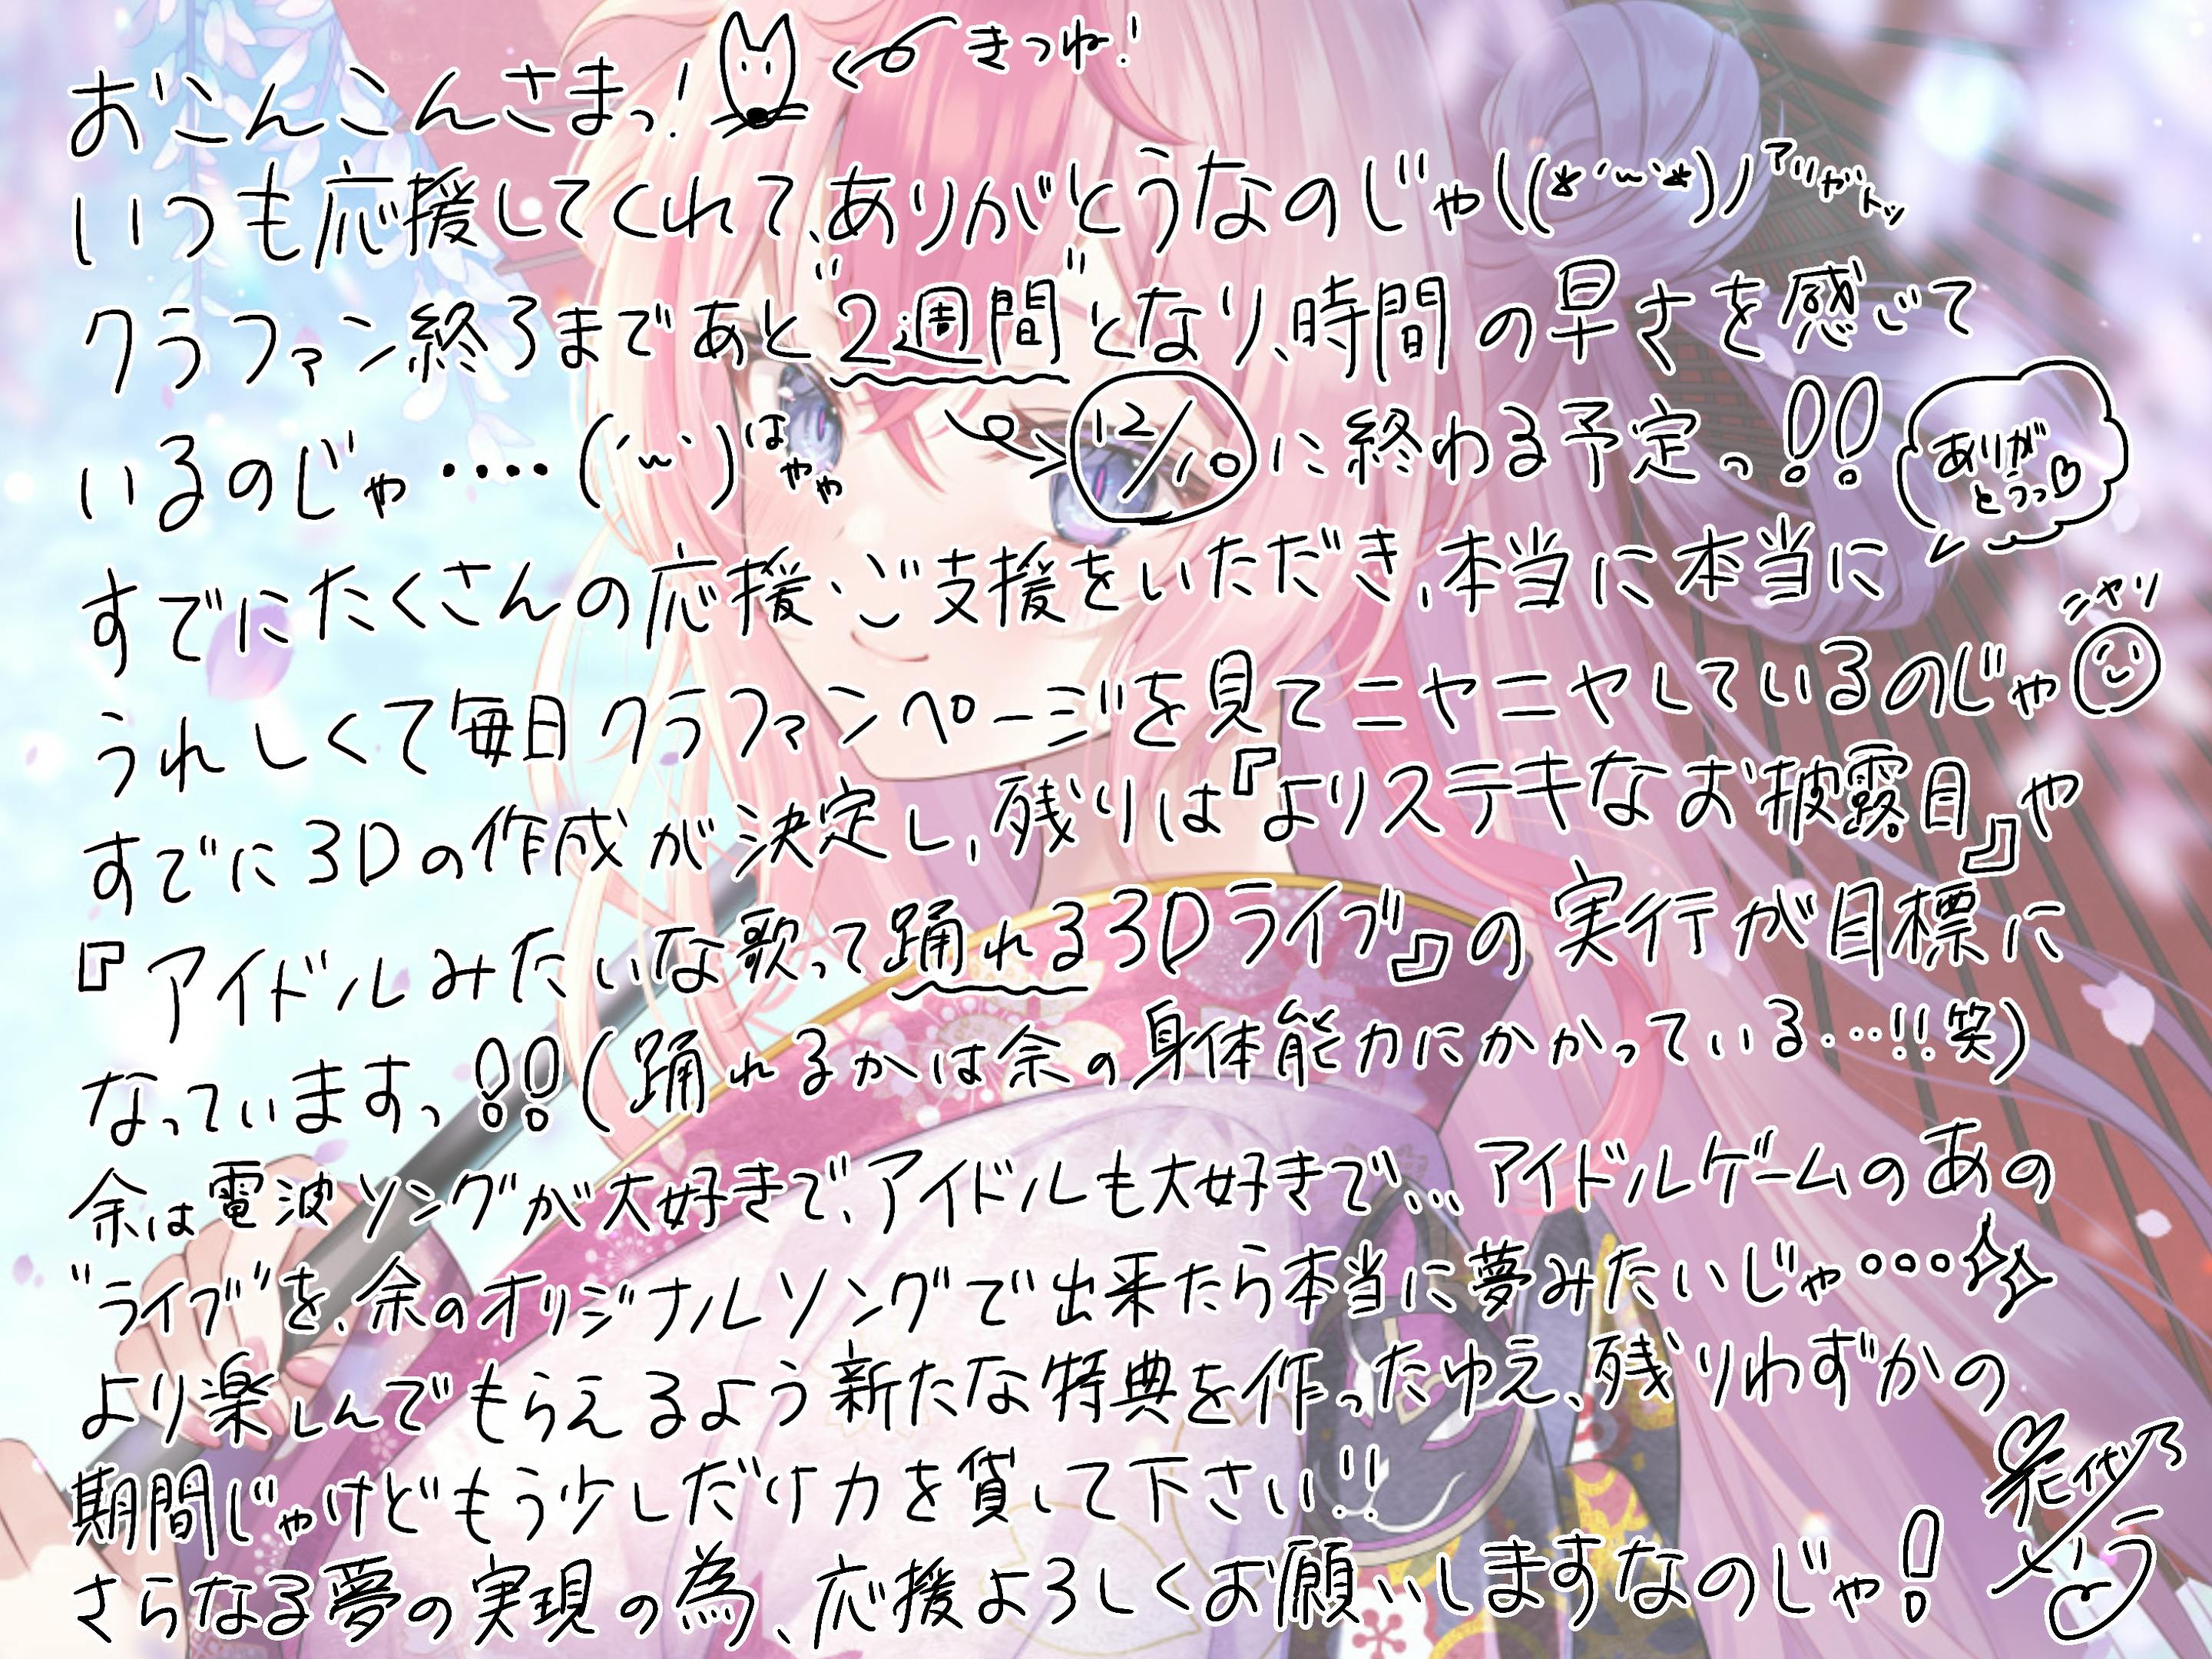 おこんこんさまっ!
きつね!
いつも応援してくれて、ありがとうなのじゃ((*´~`*)ノ アリガトッ
クラファン終了まであと"2週間"となり、時間の早さを感じて
いるのじゃ‥‥(´~`)はやや
12/10に終わる予定っ!!
ありがとうっ♡
すでにたくさんの応援、ご支援をいただき、本当に本当に
うれしくて毎日クラファンページを見てニヤニヤしているのじゃ
ニヤリ
すでに3Dの作成が決定し、残りは『よりステキなお披露目』や
『アイドルみたいな歌って踊れる3Dライブ』の実行が目標に
なっていますっ!!(踊れるかは余の身体能力にかかっている…!!笑)
余は電波ソングが大好きで、アイドルも大好きで、、、アイドルゲームのあの
"ライブ"を、余のオリジナルソングで出来たら本当に夢みたいじゃ…✧✧
より楽しんでもらえるよう新たな特典を作ったゆえ、残りわずかの
期間じゃけどもう少しだけ力を貸して下さい!!
さらなる夢の実現の為、応援よろしくお願いしますなのじゃ!